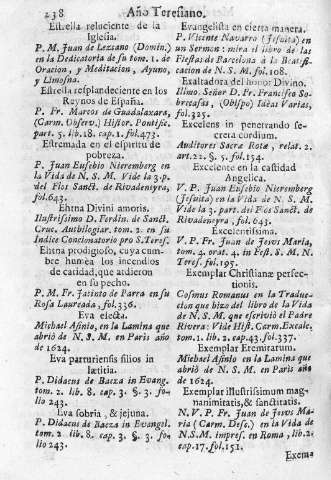 238 Año Teresiano.
Estrella reluciente de la
Iglesia.
P. M. Juan de Lezano (Domin.)
en la Dedicatoria de su tom. 1. de
Oracion, y Meditacion, Ayuno,
y Limosna.
Estrella resplandeciente en los
Reynos de España.
P. Fr. Marcos de Guadalaxara,
(Carm. Observ.) Histor. Pontific.
part. 5. lib. 18. cap. 1. fol. 473.
Estremada en el espiritu de
pobreza.
P. Juan Eusebio Nieremberg en
la Vida de N. S. M. Vide la 3. p.
del Flos Sanct. de Rivadeneyra,
fol. 643.
Ehtna Divini amoris.
Ilustrissimo D. Ferdin. de Sanct.
Cruc. Autbilogiar. tom. 2. en su
Indice Concionatorio pro S. Teres.
Ehtna prodigioso, cuya cum-
bre humèa los incendios
de caridad, que ardieron
en su pecho.
P. M. Fr. Jacinto de Parra en su
Rosa Laureada, fol. 336.
Eva electa.
Michael Asinio, en la Lamina que
abriò de N. S. M. en Paris año
de 1624.
Eva parturiensis filios in
lætitia.
P. Didacus de Baeza in Evang.
tom. 2. lib. 8. cap. 3. §. 3. fo-
lio 243.
Eva sobria, & jejuna.
P. Didacus de Baeza in Evang.
tom. 2. lib. 8. cap. 3. §. 3. fo-
lio 243.
Evangelista en cierta manera.
P. Vicente Navarro (Jesuita) en
un Sermon: mira el libro de las
Fiestas de Barcelona à la Beati-
cacion de N. S. M. fol. 108.
Exaltadora del honor Divino.
Ilmo. Señor D. Fr. Francisco So-
brecasas, (Obispo) Ideas Varias,
fol. 325.
Excelens in penetrando se-
crera cordium.
Auditores Sacra Rotæ, relat. 2.
art. 22. §. 5. fol. 154.
Excelente en la castidad
Angelica.
V. P. Juan Eusebio Nieremberg
(Jesuita) en la Vida de N. S. M.
Vide la 3. part. del Flos Sanct. de
Rivadeneyra, fol. 643.
Excelentissima.
V. P. Fr. Juan de Jesus Maria,
tom. 4. orat. 4. in Fest. S. M. N.
Teres. fol. 195.
Exemplar Christianæ perfec-
tionis.
Cosmus Romanus en la Traduc-
cion que hizo del libro de la Vida
de N. S. M. que escriviò el Padre
Rivera: Vide Hist. Carm. Excalc.
tom. 1. lib. 2. cap. 43. fol. 337.
Exemplar Eremitarum.
Michael Asinio en la Lamina que
abriò de N. S. M. en Paris año
de 1624.
Exemplar illustrissimum mag-
nanimitatis, & sanctitatis.
N. V. P. Fr. Juan de Jesus Ma-
ria (Carm. Desc.) en la Vida de
N. S. M. impres. en Roma, lib. 2.
cap. 17. fol. 151.
Exem-